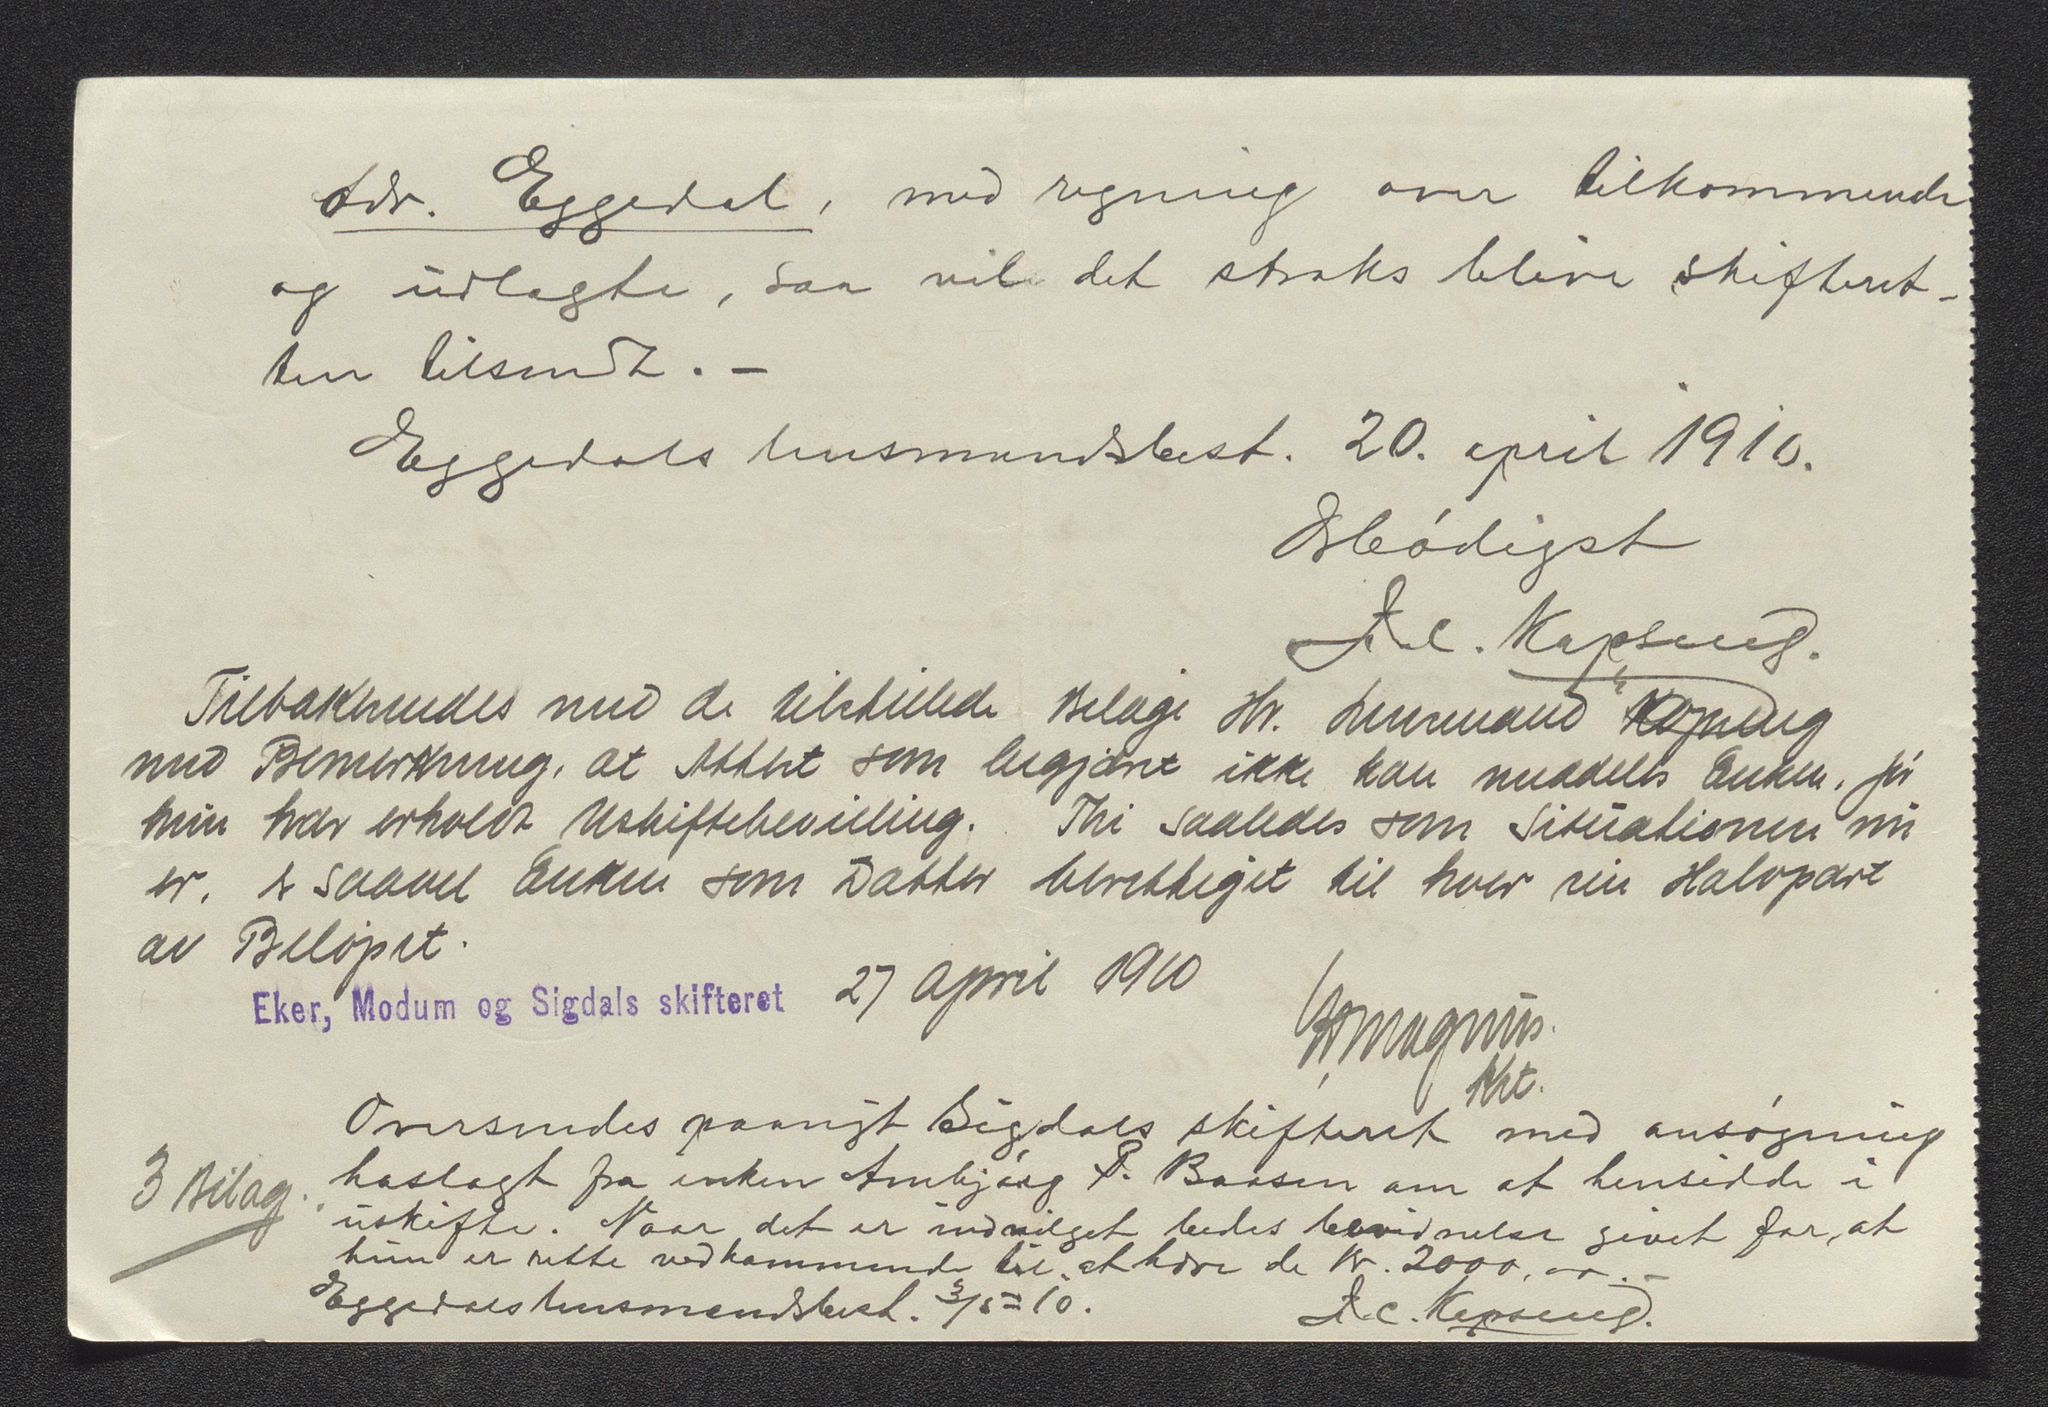 Adr. Eggedal, med regning over tilkommende
og udlagte, saa vil det straks blive skifteret-
ten tilsendt. -
Eggedals lensmandsbest. 20. april 1910.
Ærbødigst
J. C. Kopseng.
Tilbakesendes med de tilstillede Bilage Hr. Lensmand Kopseng
med Bemerkning, at Attest som begjæret ikke kan meddeles Enken, før
hun har erholdt Uskiftebevilling. Thi saaledes som Situationen nu
er, er saavel Enken som Datter berettiget til hver sin Halvpart
av Beløpet.
Eker, Modum og Sigdals skifteret 27 April 1910
Magnus.
kst.
Oversendes paanyt Sigdals skifteret med ansøgning
3 Bilag.
haslagt fra enken Ambjørg P. Baasen om at hensidde i
uskifte. Naar det er indvilget bedes bevidnelse givet for, at
hun er rette vedkommende til at hæve de Kr. 2000,00.-
Eggedals lensmandsbest. 3/5-10.
J. C. Kopseng.